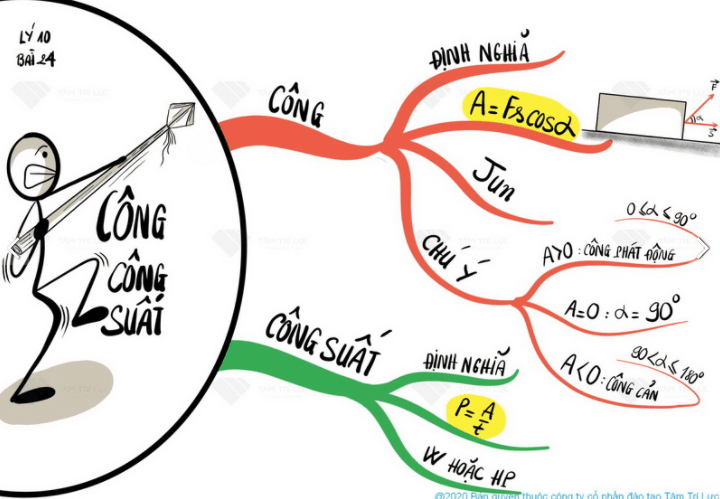 LÝ 10
BÀI 24
CÔNG
CÔNG
SUẤT
CÔNG
ĐỊNH NGHĨA
A = Fs cosα
F
α
s
Jun
CHÚ Ý
0 ≤ α ≤ 90°
A>0 : CÔNG PHÁT ĐỘNG
A=0 : α = 90°
90 < α ≤ 180°
A<0 : CÔNG CẢN
CÔNG SUẤT
ĐỊNH NGHĨA
P = A/t
W HOẶC HP
@2020 Bản quyền thuộc công ty cổ phần đào tạo Tâm Trí Lực
TÂM TRÍ LỰC